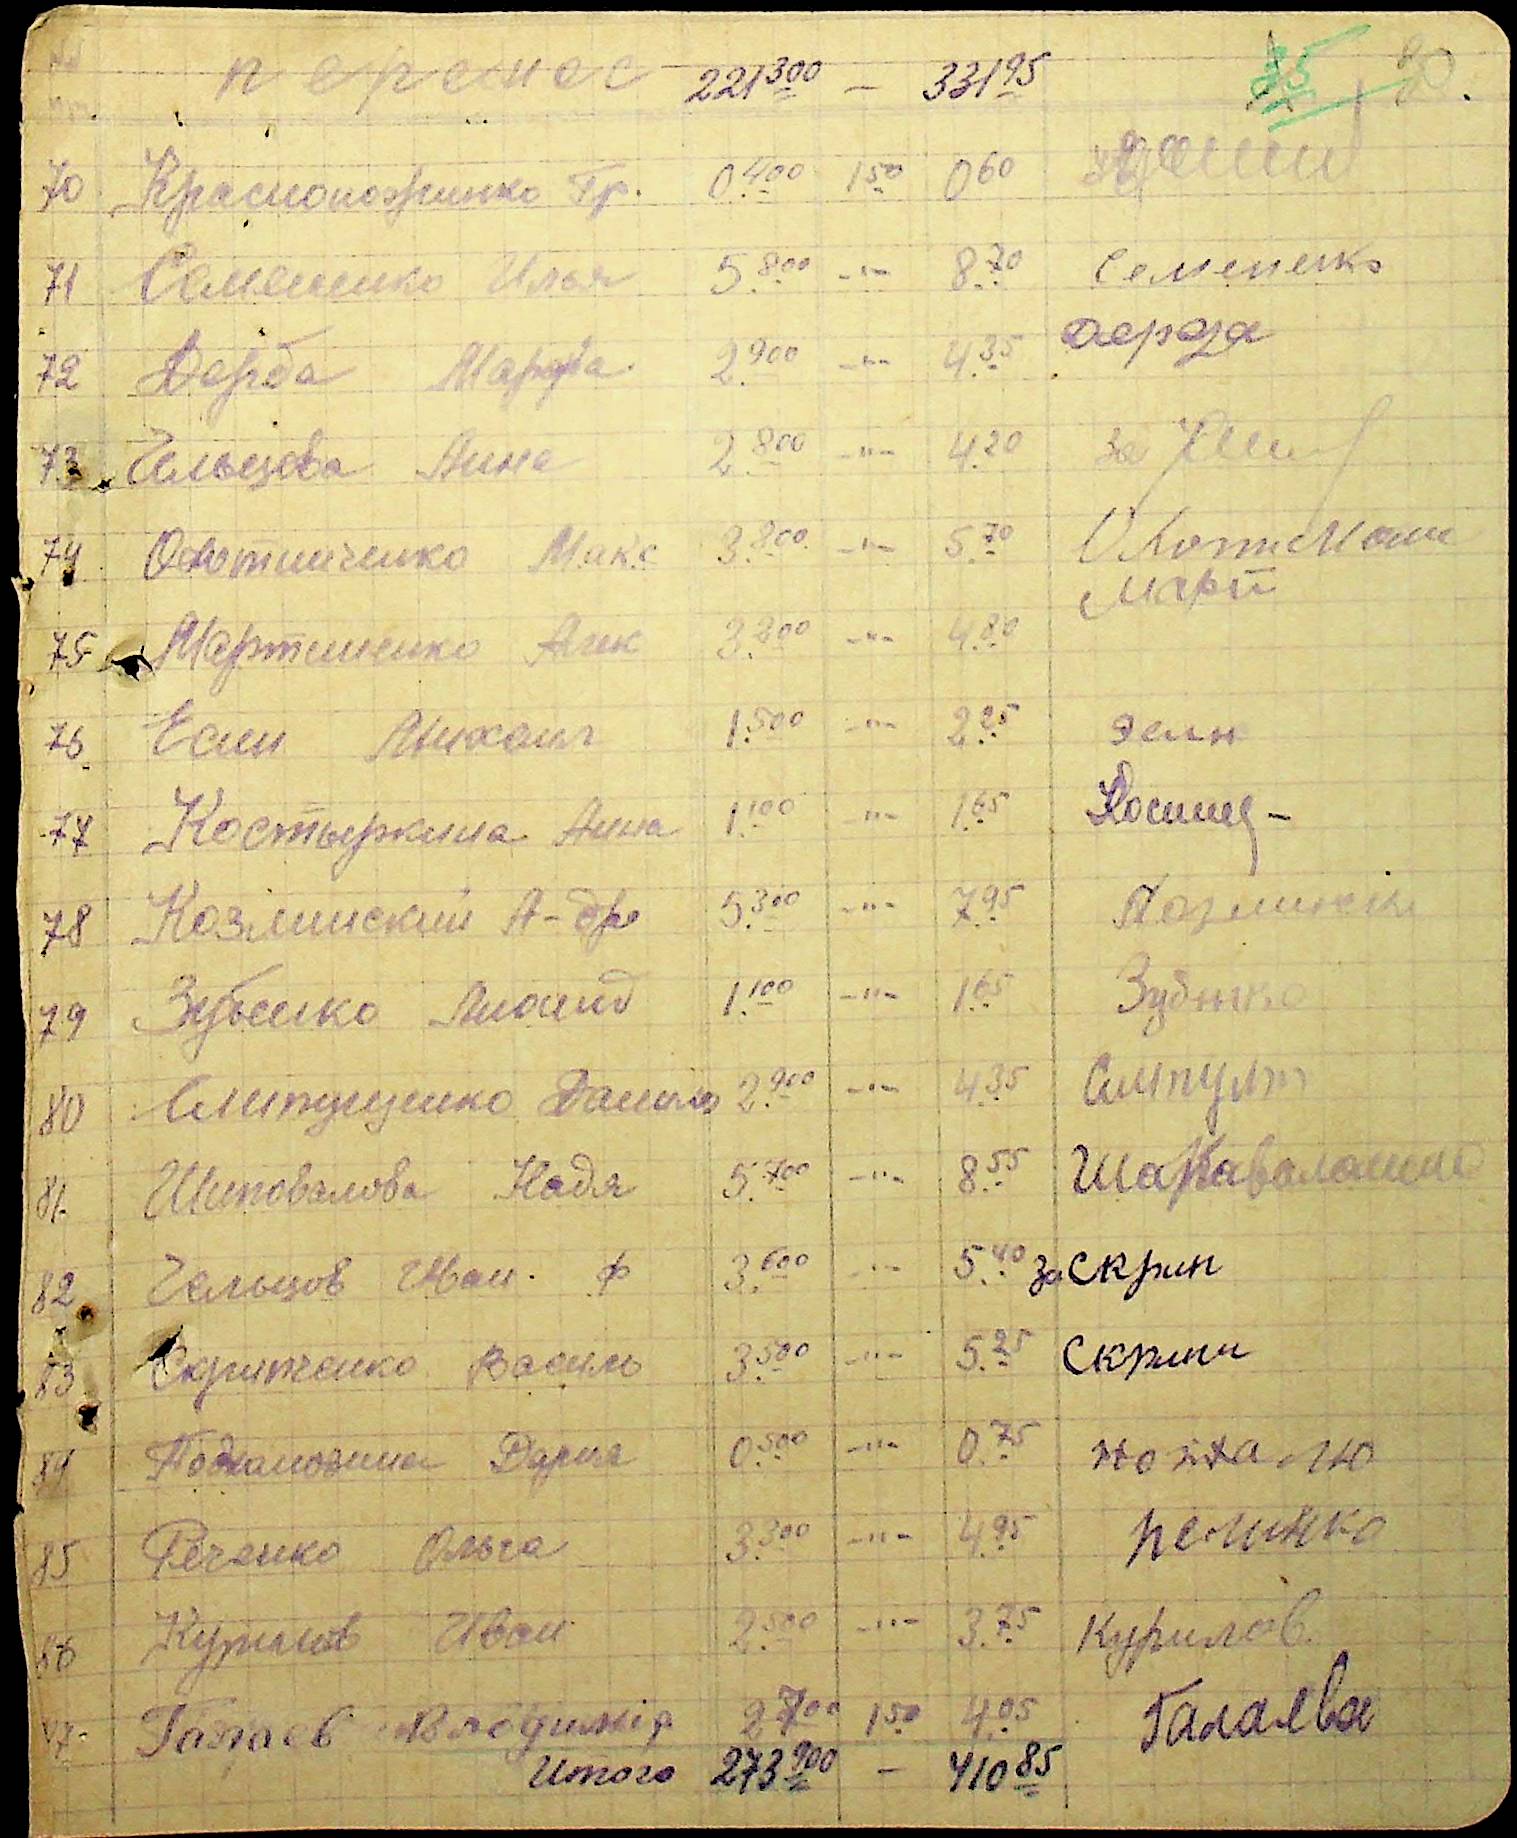 перенос 221300 - 33195 85 80.
70 Краснокозринко Гр. 0.400 150 060
71 Семененко Илья 5.800 -"- 8.70 Семененко
72 Дерба Марфа 2.900 -"- 4.35
73 Чельцова Анна 2.800 -"- 4.20 за
74 Охотниченко Макс 3.800 -"- 5.70
75 Мартиненко Алек 3.200 -"- 4.80 Март
76 Есин Михаил 1.500 -"- 2.25
77 Костыркина Анна 1.100 -"- 1.65
78 Козлинский А-др 5.300 -"- 7.95
79 Зубенко Леонид 1.100 -"- 1.65 Зубенко
80 Слипущенко Данило 2.900 -"- 4.35
81. Шиповалова Надя 5.700 -"- 8.55
82 Чельцов Иван. Ф 3.600 -"- 5.40 за Скрип
83 Скрипченко Василь 3.500 -"- 5.25 Скрипч
84 Дария 0.500 -"- 0.75
85 Реченко Ольга 3.300 -"- 4.95
86 Курилов Иван 2.500 -"- 3.75 Курилов.
87. Галаев Володимір 2700 150 4.05 Галаева
Итого 273900 - 41085